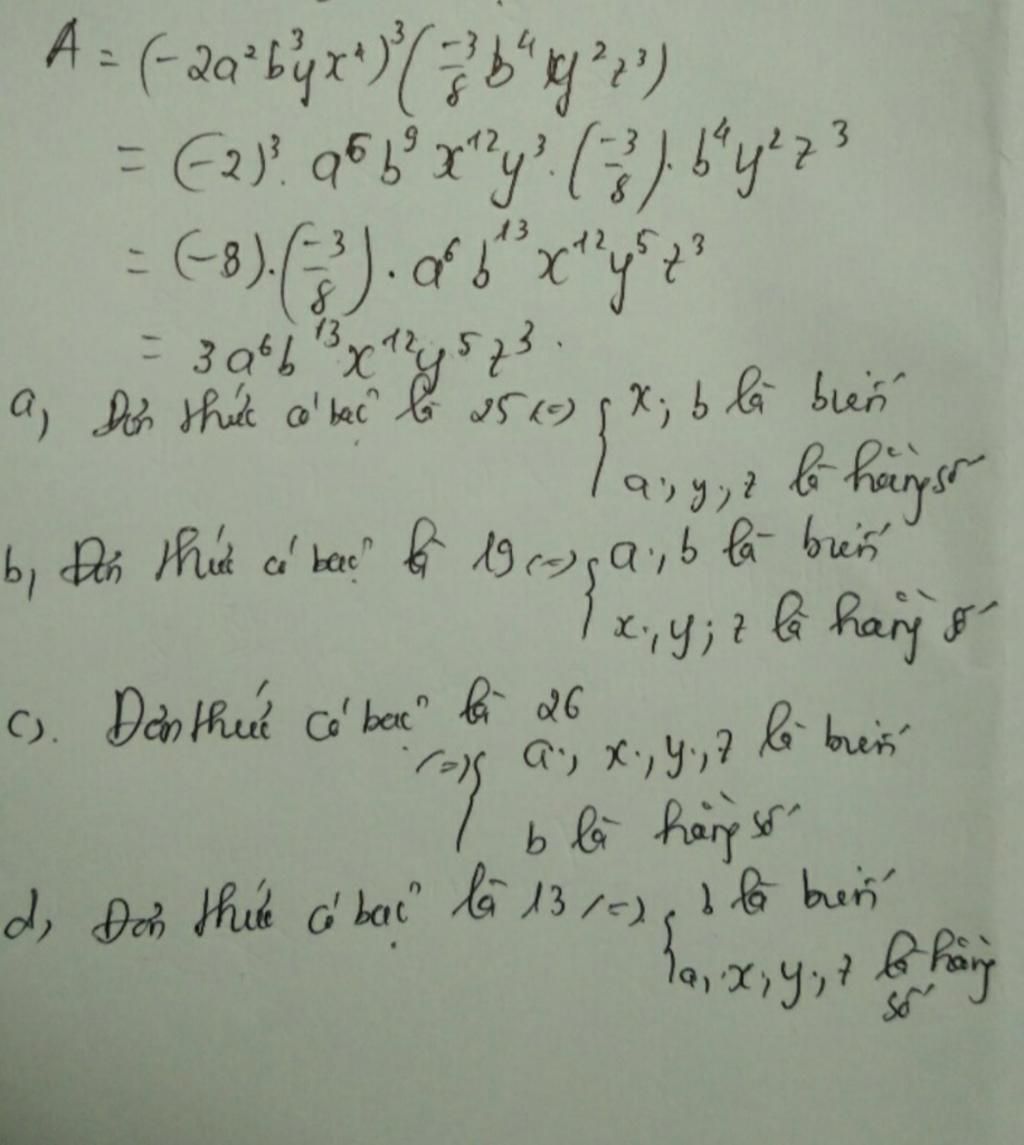 A = (-2a²b³yx⁴)³(-3/8 b⁴xy²z³)
= (-2)³. a⁶b⁹x¹²y³.(-3/8).b⁴y²z³
= (-8).(-3/8).a⁶b¹³x¹²y⁵z³
= 3a⁶b¹³x¹²y⁵z³.
a, Đơn thức có bậc là 25 <=> { x; b là biến
a; y; z là hằng số
b, Đơn thức có bậc là 19 <=> { a; b là biến
x; y; z là hằng số
c). Đơn thức có bậc là 26
<=> { a; x; y; z là biến
b là hằng số
d, Đơn thức có bậc là 13 <=> { b là biến
a, x, y; z là hằng
số